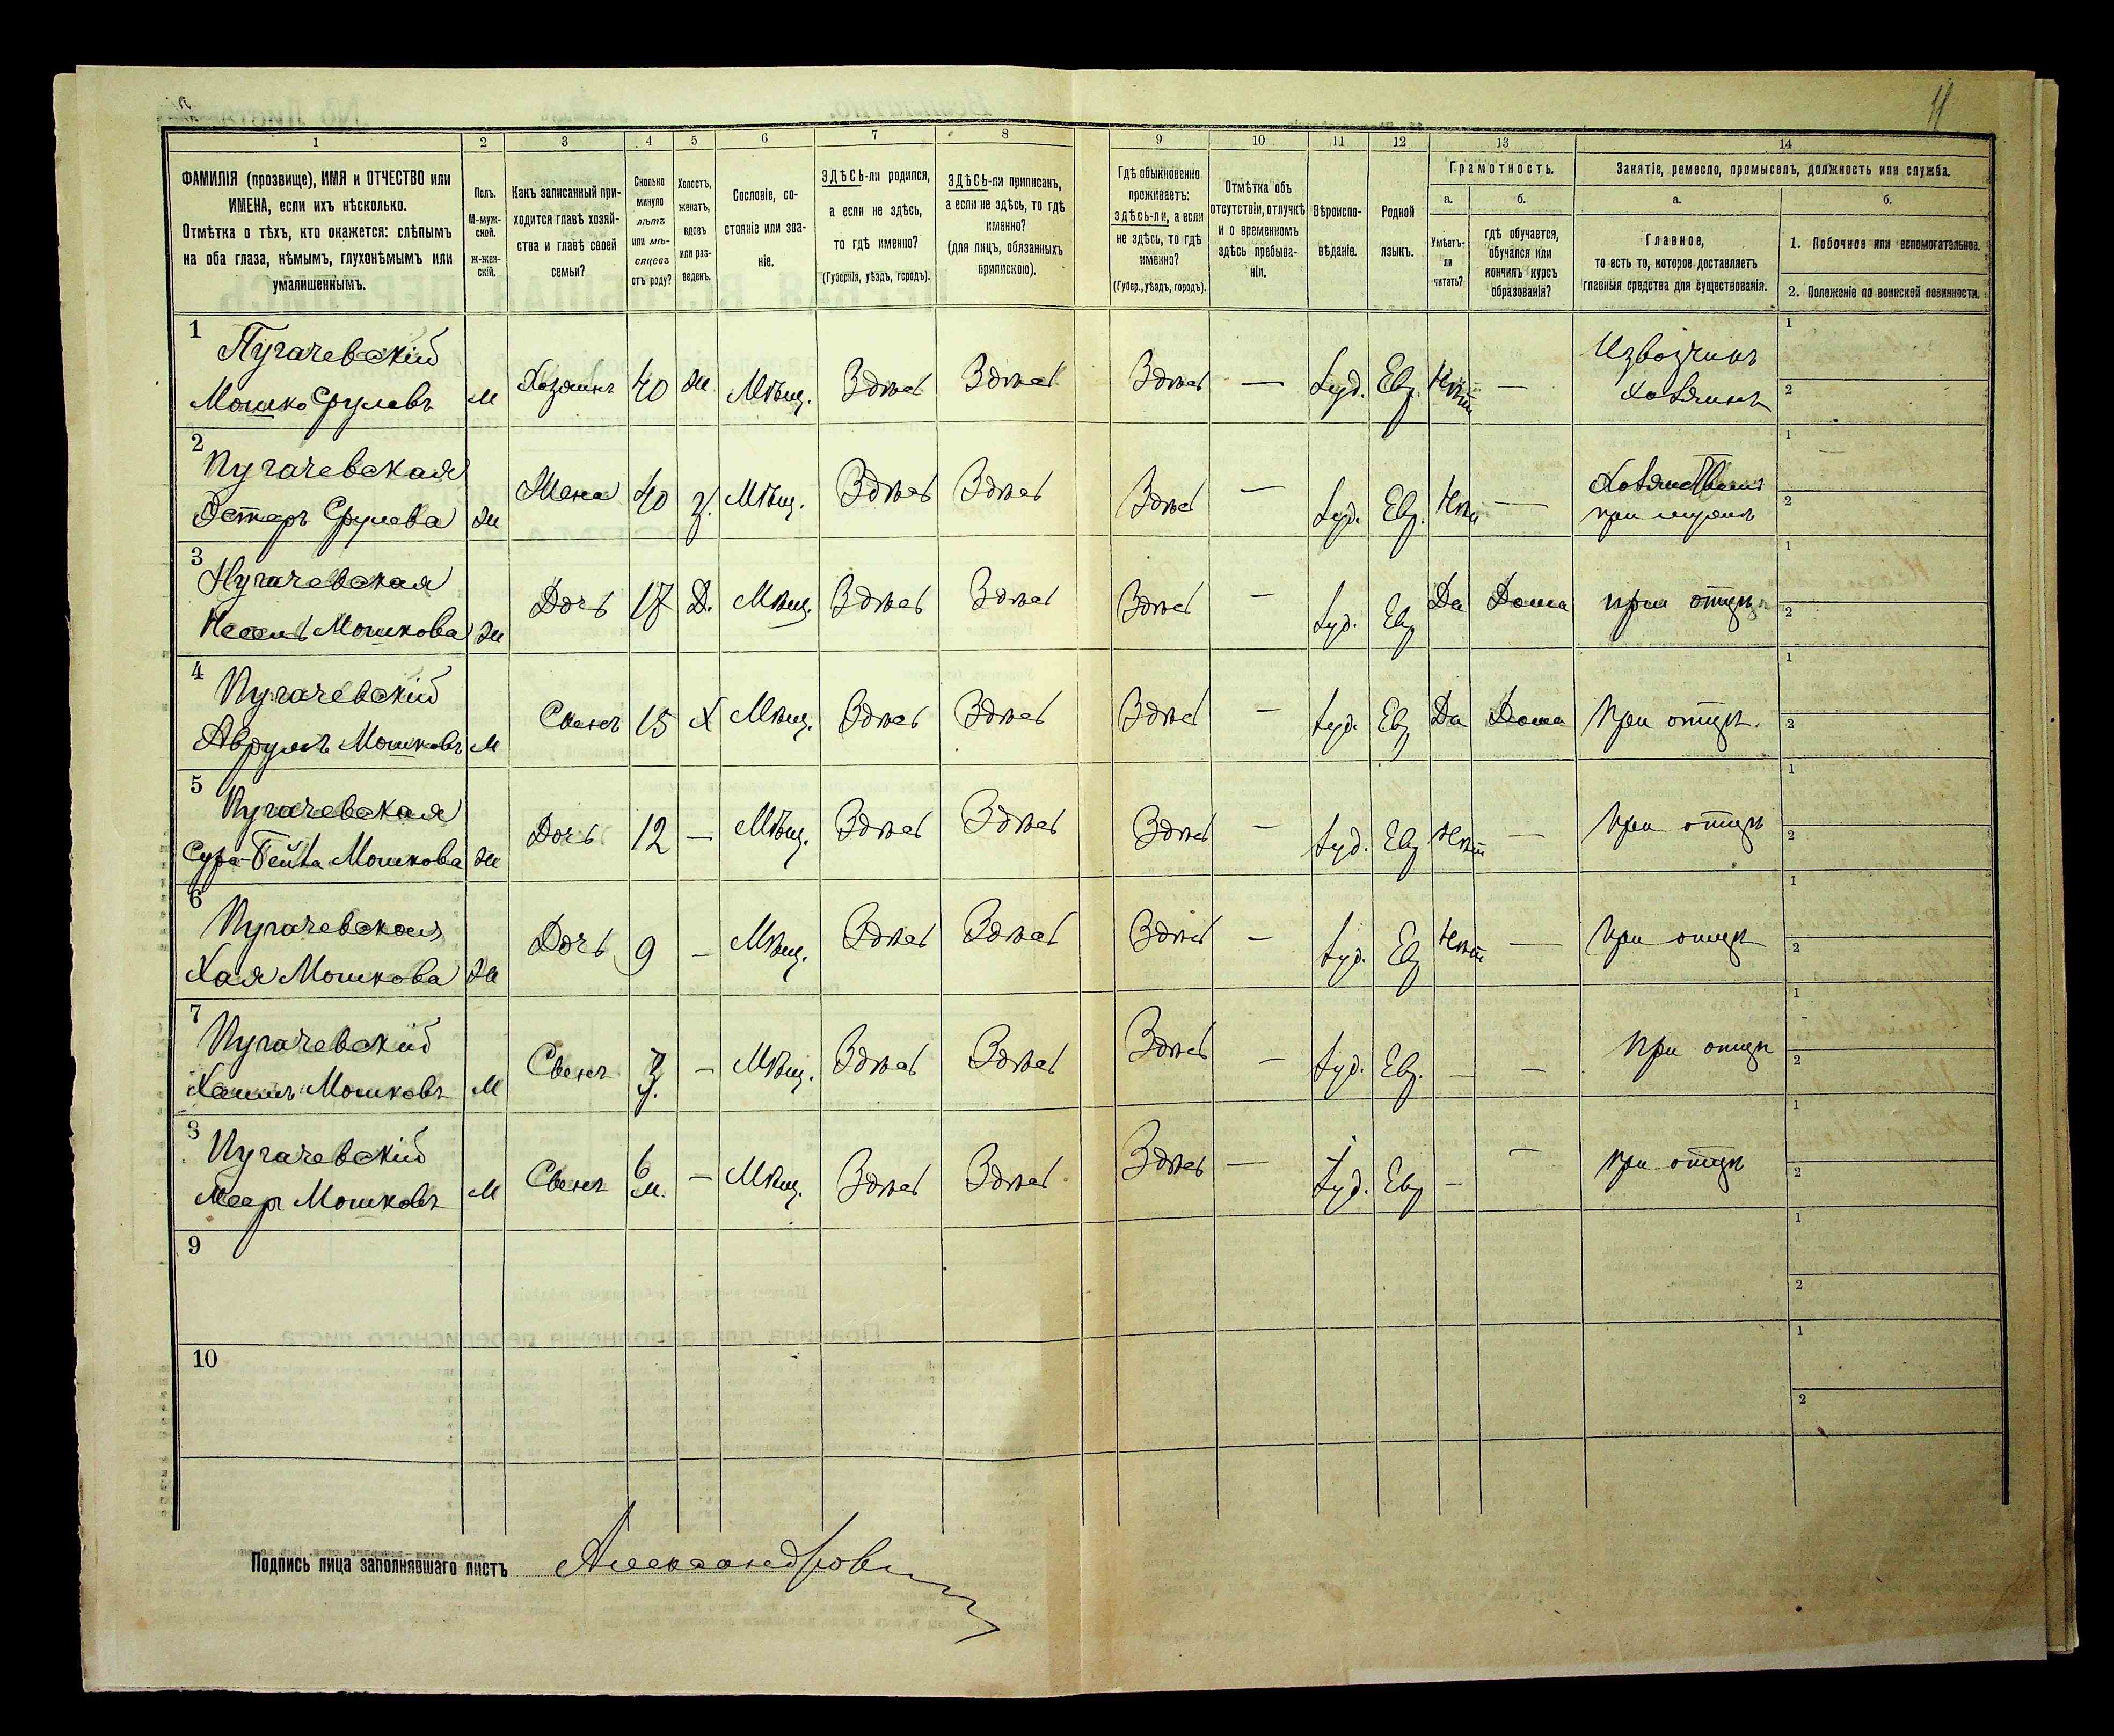 11
1 2 3 4 5 6 7 8 9 10 11 12 13 14
ФАМИЛІЯ (прозвище), ИМЯ и ОТЧЕСТВО или
ИМЕНА, если ихъ нѣсколько.
Отмѣтка о тѣхъ, кто окажется: слѣпымъ
на оба глаза, нѣмымъ, глухонѣмымъ или
умалишеннымъ.
Полъ.
М-муж-
ской.
Ж-жен-
скій.
Какъ записанный при-
ходится главѣ хозяй-
ства и главѣ своей
семьи?
Сколько
минуло
лѣтъ
или мѣ-
сяцевъ
отъ роду?
Холостъ,
женатъ,
вдовъ
или раз-
веденъ.
Сословіе, со-
стояніе или зва-
ніе.
ЗДѢСЬ-ли родился,
а если не здѣсь,
то гдѣ именно?
(Губернія, уѣздъ, городъ).
ЗДѢСЬ-ли приписанъ,
а если не здѣсь, то гдѣ
именно?
(для лицъ, обязанныхъ
припискою).
Гдѣ обыкновенно
проживаетъ:
здѣсь-ли, а если
не здѣсь, то гдѣ
именно?
(Губер., уѣздъ, городъ).
Отмѣтка объ
отсутствіи, отлучкѣ
и о временномъ
здѣсь пребыва-
ніи.
Вѣроиспо-
вѣданіе.
Родной
языкъ.
Грамотность.
а.
Умѣетъ-
ли
читать?
б.
гдѣ обучается,
обучался или
кончилъ курсъ
образованія?
Занятіе, ремесло, промыселъ, должность или служба.
а.
Главное,
то есть то, которое доставляетъ
главныя средства для существованія.
б.
1. Побочное или вспомогательное.
2. Положеніе по воинской повинности.
1
Пугачевскій
Мошко Срулевъ М Хозяинъ 40 Ж. Мѣщ. Здѣсь Здѣсь Здѣсь — Іуд. Евр. Нѣтъ —
Извозчикъ
хозяинъ
1
2
2
Пугачевская
Эстеръ Срулева Ж Жена 40 З. Мѣщ. Здѣсь Здѣсь Здѣсь — Іуд. Евр. Нѣтъ —
при мужѣ
1 —
2
3
Пугачевская
Мошкова Ж Дочь 17 Д. Мѣщ. Здѣсь Здѣсь Здѣсь — Іуд. Евр Да Дома при отцѣ
1
2
4
Пугачевскій
Аврумъ Мошковъ М Сынъ 15 Х Мѣщ. Здѣсь Здѣсь Здѣсь — Іуд. Евр Да Дома При отцѣ.
1
2
5
Пугачевская
Сура-Бейла Мошкова Ж Дочь 12 — Мѣщ. Здѣсь Здѣсь Здѣсь — Іуд. Евр Нѣтъ — При отцѣ
1
2
6
Пугачевская
Хая Мошкова Ж Дочь 9 — Мѣщ. Здѣсь Здѣсь Здѣсь — Іуд. Евр Нѣтъ — При отцѣ
1
2
7
Пугачевскій
Хаимъ Мошковъ М Сынъ 3 г. — Мѣщ. Здѣсь Здѣсь Здѣсь — Іуд. Евр. — — При отцѣ
1
2
8
Пугачевскій
Меер Мошковъ М Сынъ 6 м. — Мѣщ. Здѣсь Здѣсь Здѣсь — Іуд. Евр — — при отцѣ
1
2
9
1
2
10
1
2
Подпись лица заполнявшаго листъ